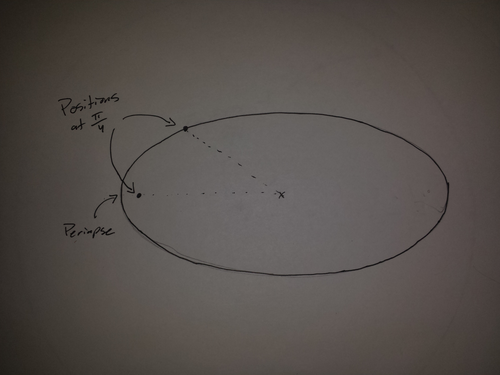 Positions
at π/4
Periapse